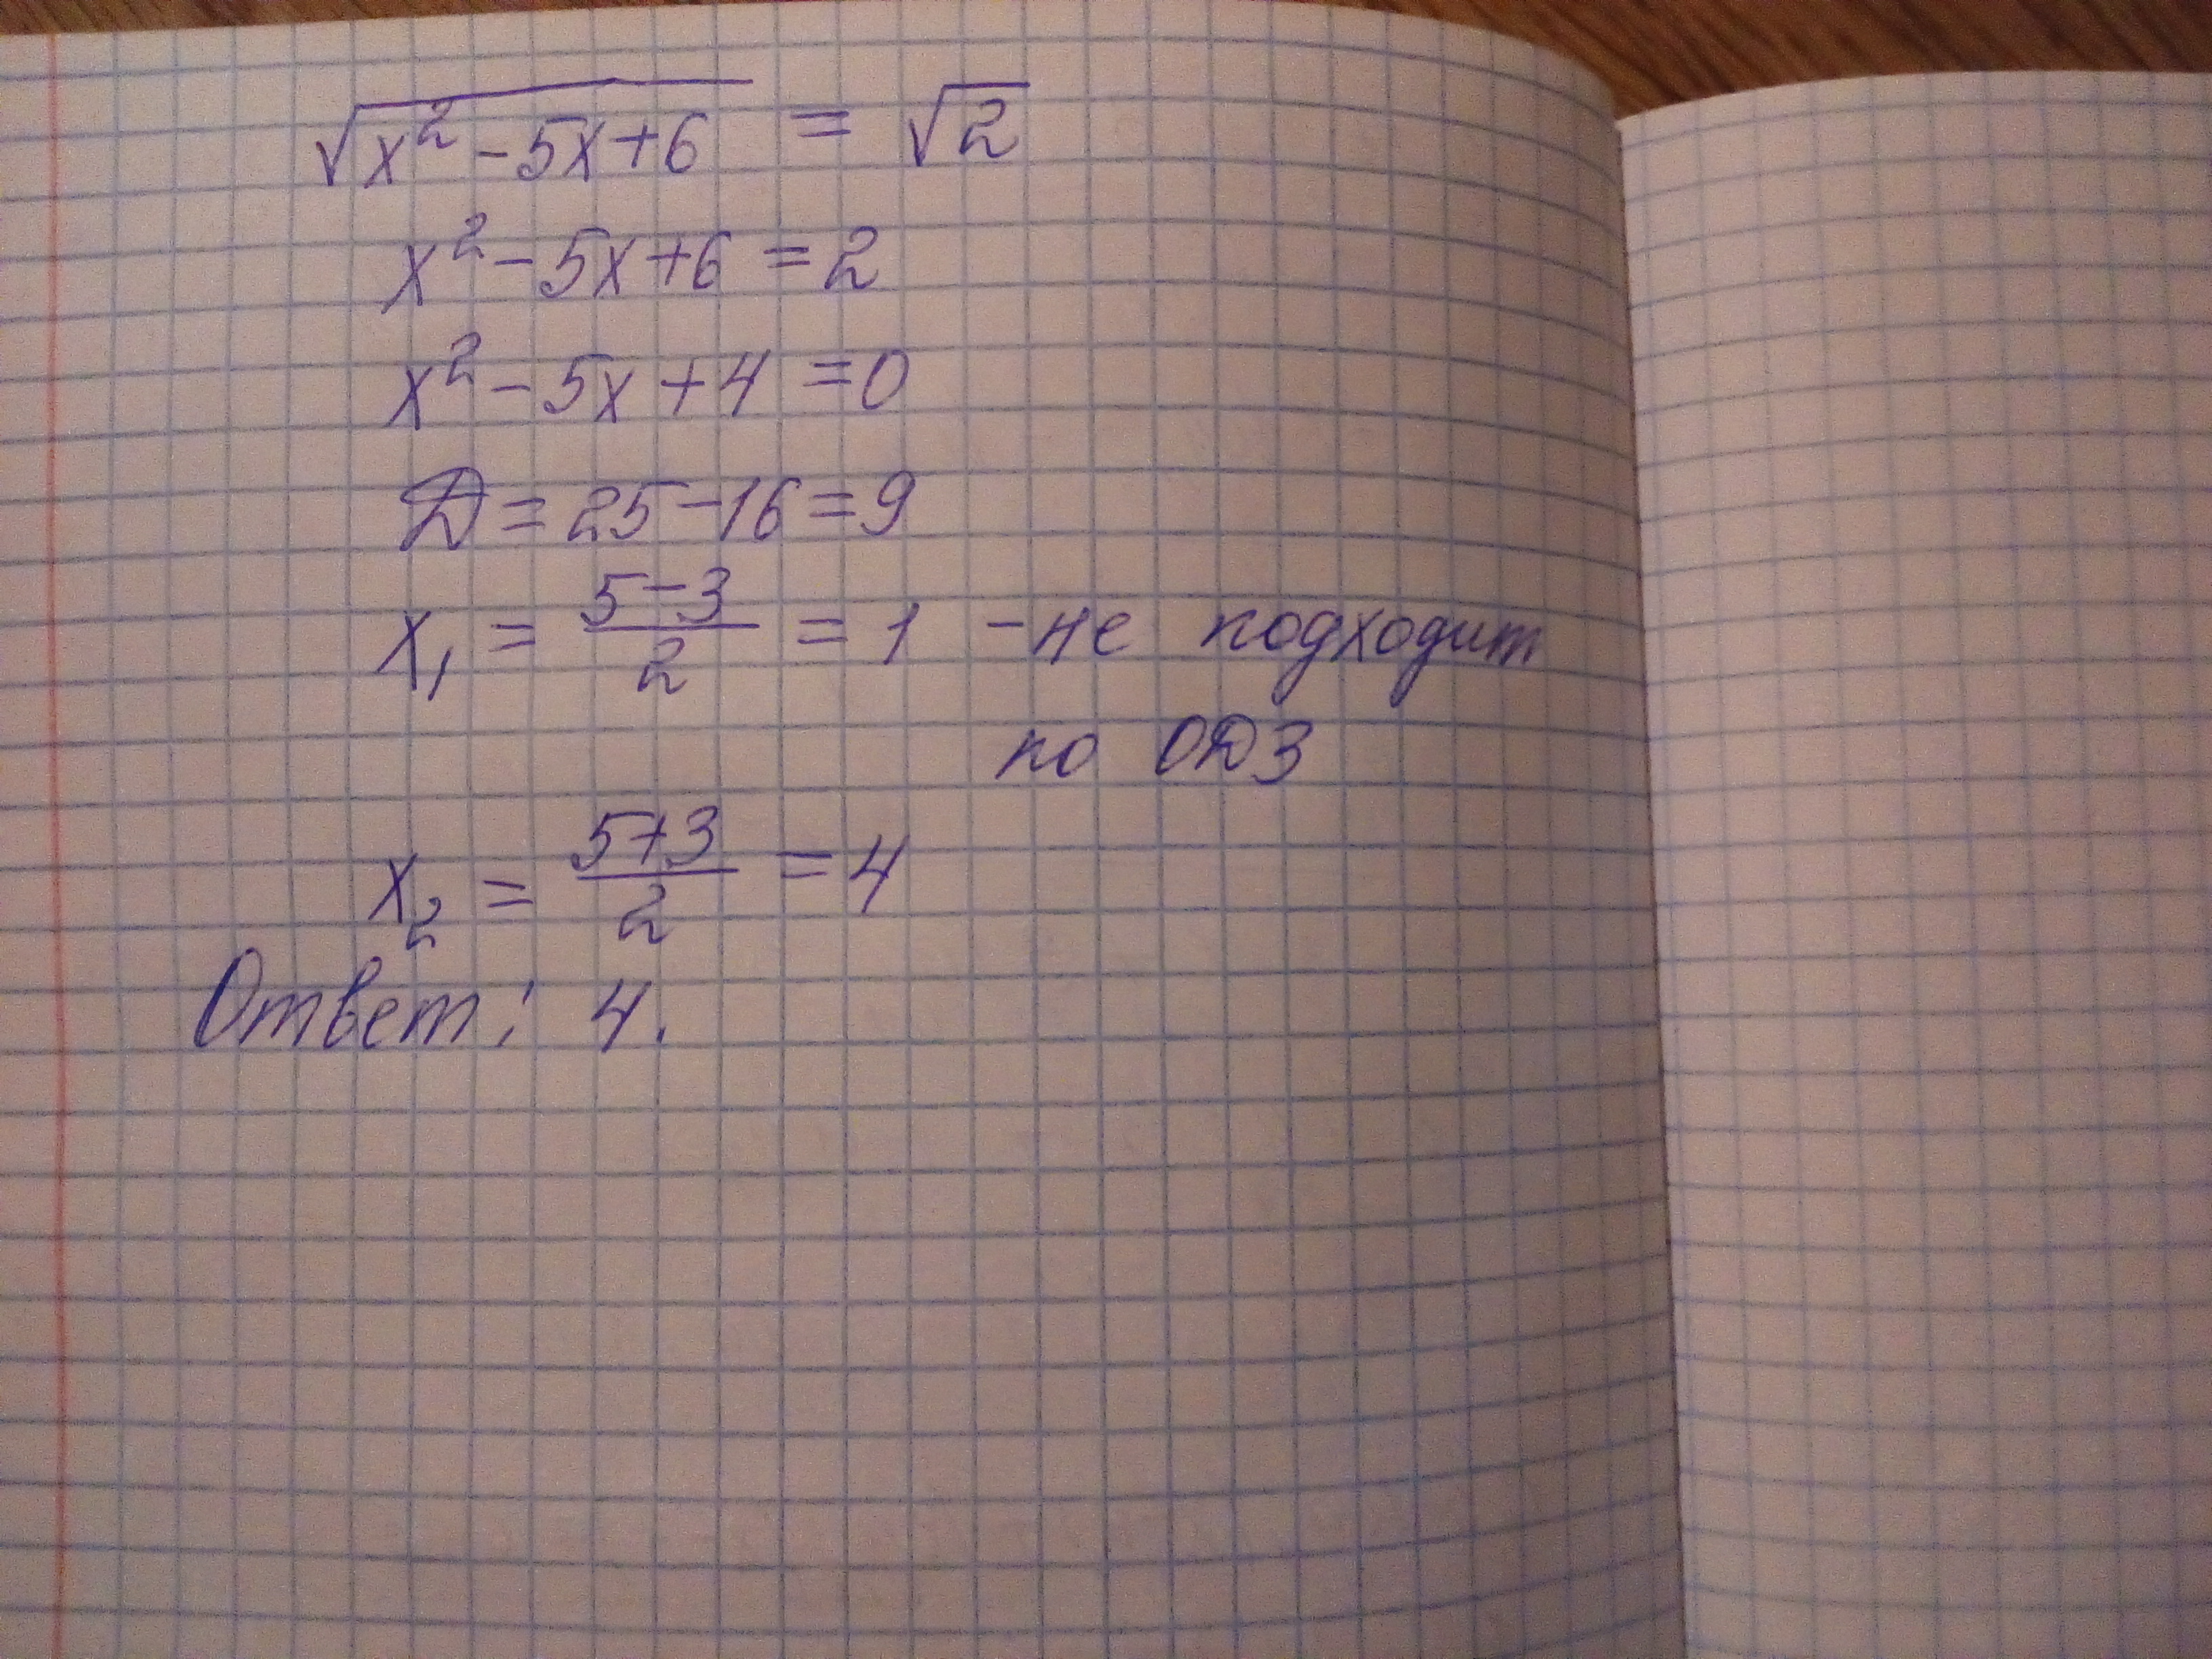 √(x² - 5x + 6) = √2
x² - 5x + 6 = 2
x² - 5x + 4 = 0
D = 25 - 16 = 9
x₁ = (5 - 3)/2 = 1 - не подходит
по ОДЗ
x₂ = (5 + 3)/2 = 4
Ответ: 4.